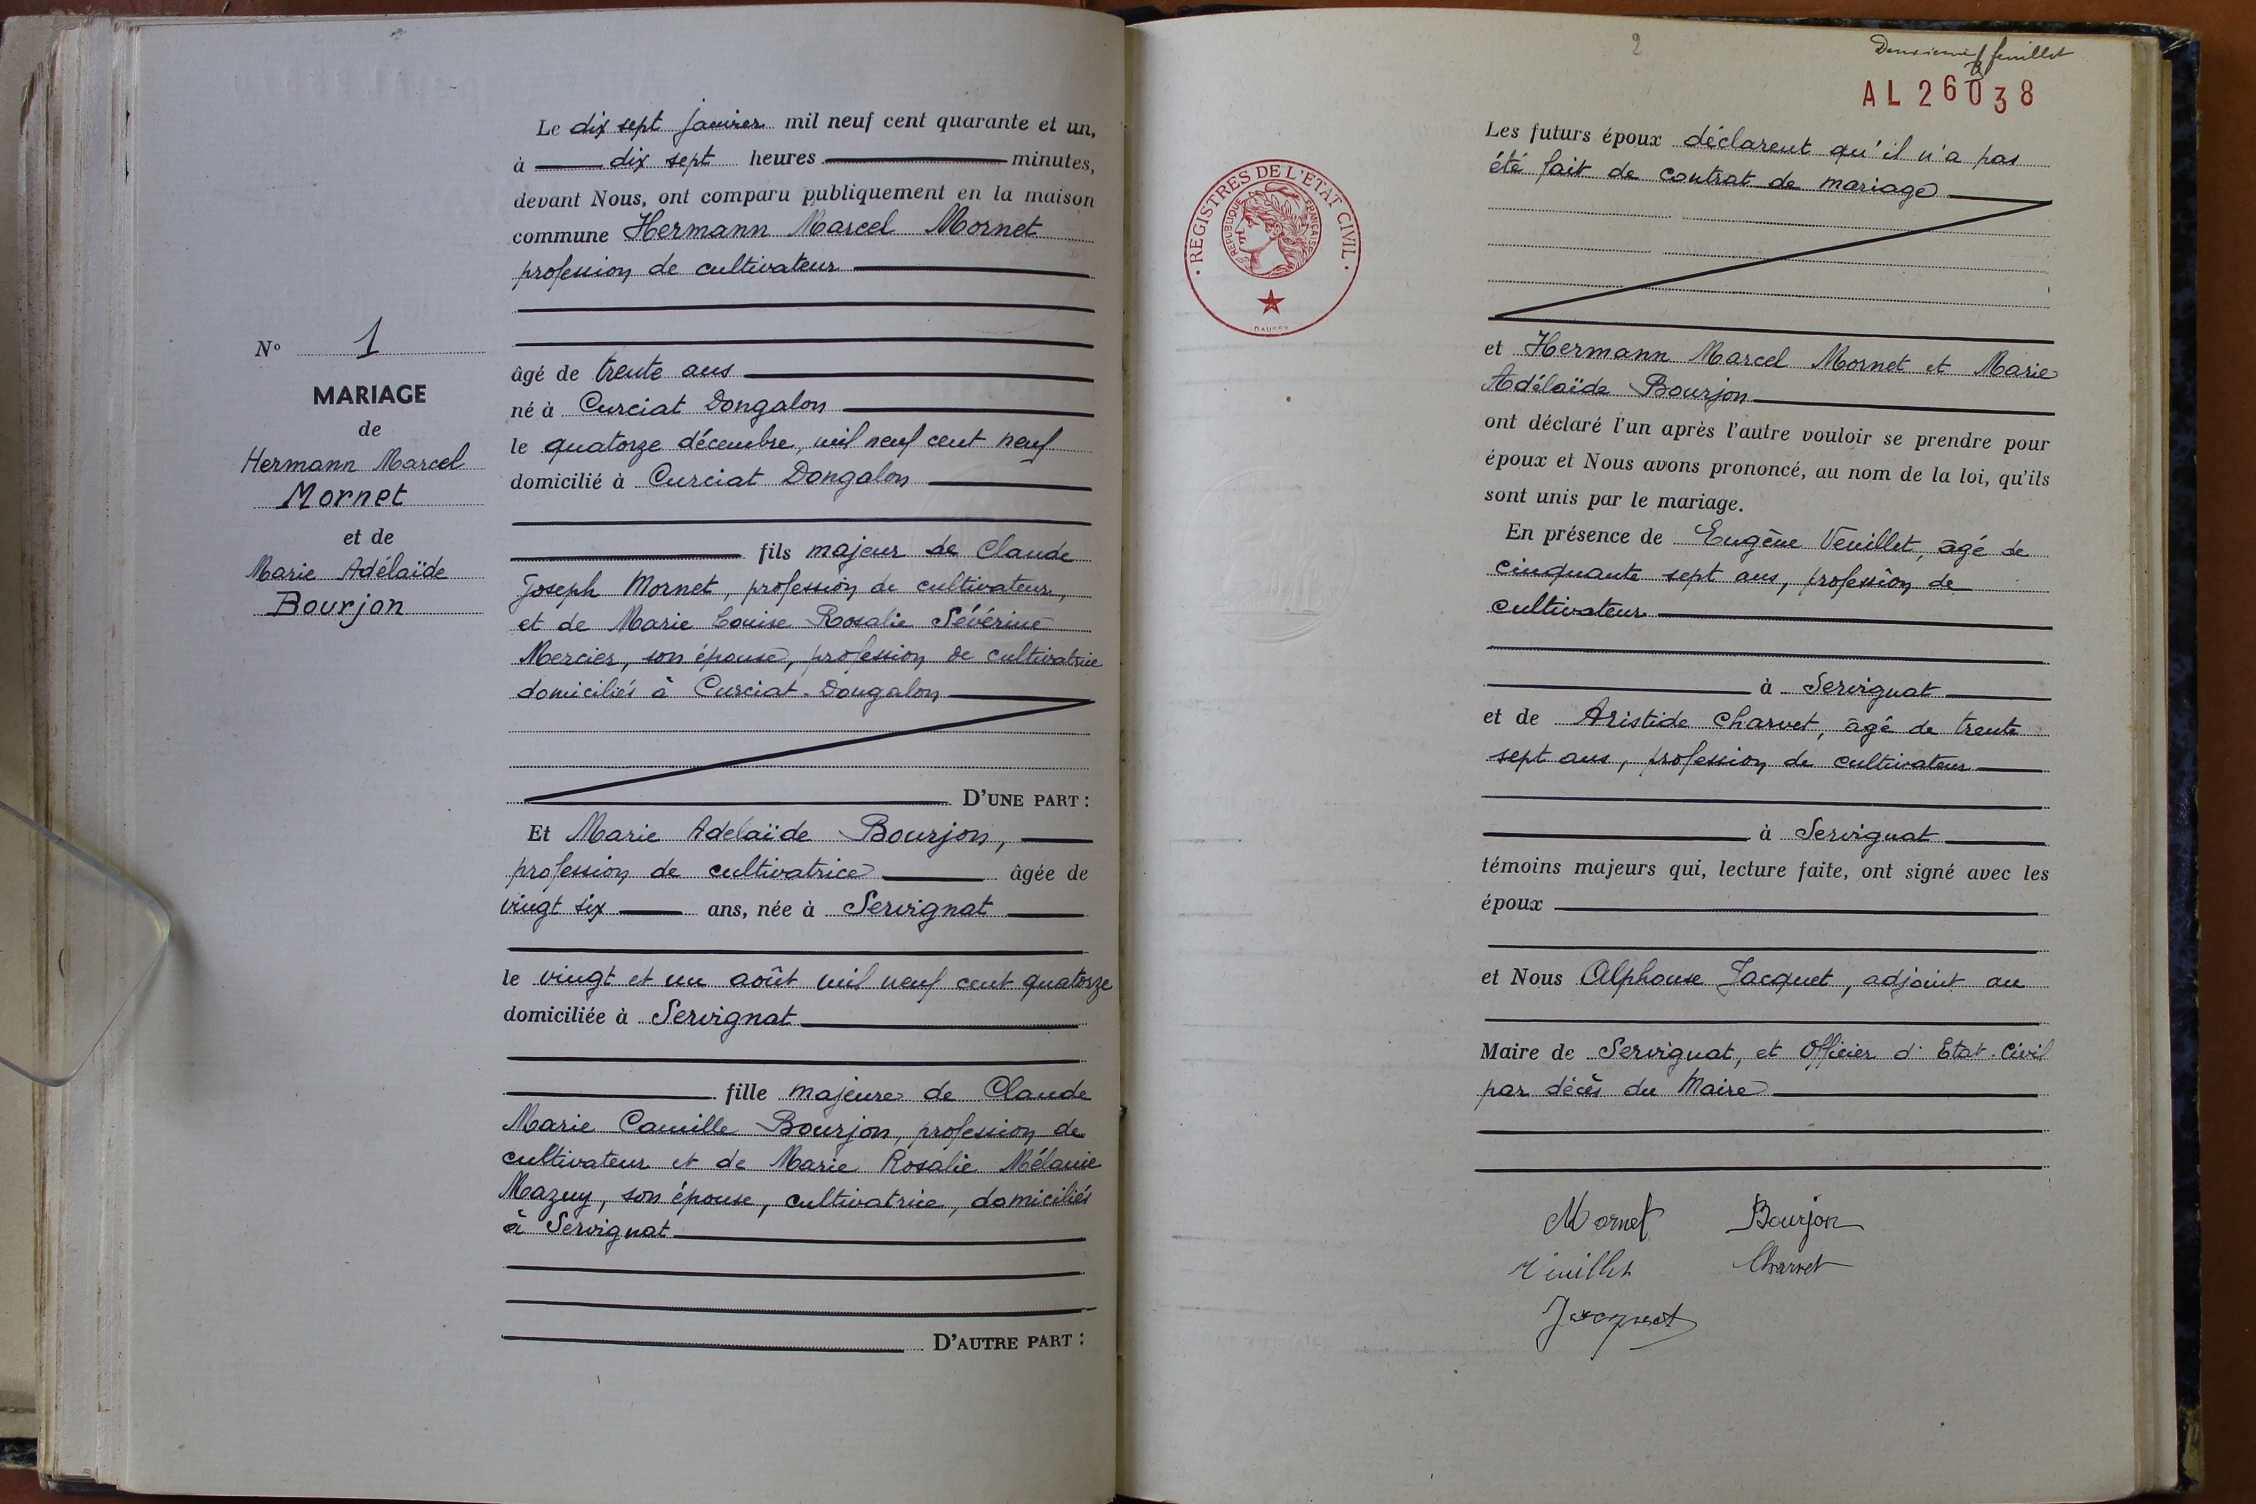 Le dix sept janvier mil neuf cent quarante et un,
à dix sept heures minutes,
devant Nous, ont comparu publiquement en la maison
commune Hermann Marcel Mornet
profession de cultivateur
âgé de trente ans
né à Curciat Dongalon
le quatorze décembre, mil neuf cent neuf
domicilié à Curciat Dongalon
fils majeur de Claude
Joseph Mornet, profession de cultivateur,
et de Marie Louise Rosalie Sévérine
Mercier, son épouse, profession de cultivatrice
domiciliés à Curciat-Dongalon
D'UNE PART :
Et Marie Adelaïde Bourjon,
profession de cultivatrice âgée de
vingt six ans, née à Servignat
le vingt et un août mil neuf cent quatorze
domiciliée à Servignat
fille majeure de Claude
Marie Camille Bourjon, profession de
cultivateur et de Marie Rosalie Mélanie
Mazuy, son épouse, cultivatrice, domiciliés
à Servignat
D'AUTRE PART :
N° 1
MARIAGE
de
Hermann Marcel
Mornet
et de
Marie Adélaïde
Bourjon
2
Deuxième feuillet
AL26038
REGISTRES DE L'ETAT CIVIL
REPUBLIQUE FRANÇAISE
Les futurs époux déclarent qu'il n'a pas
été fait de contrat de mariage
et Hermann Marcel Mornet et Marie
Adélaïde Bourjon
ont déclaré l'un après l'autre vouloir se prendre pour
époux et Nous avons prononcé, au nom de la loi, qu'ils
sont unis par le mariage.
En présence de Eugène Veuillet, âgé de
cinquante sept ans, profession de
cultivateur
à Servignat
et de Aristide Charvet, âgé de trente
sept ans, profession de cultivateur
à Servignat
témoins majeurs qui, lecture faite, ont signé avec les
époux
et Nous Alphonse Jacquet, adjoint au
Maire de Servignat, et Officier d'Etat-Civil
par décès du Maire
Mornet Bourjon
Veuillet Charvet
Jacquet